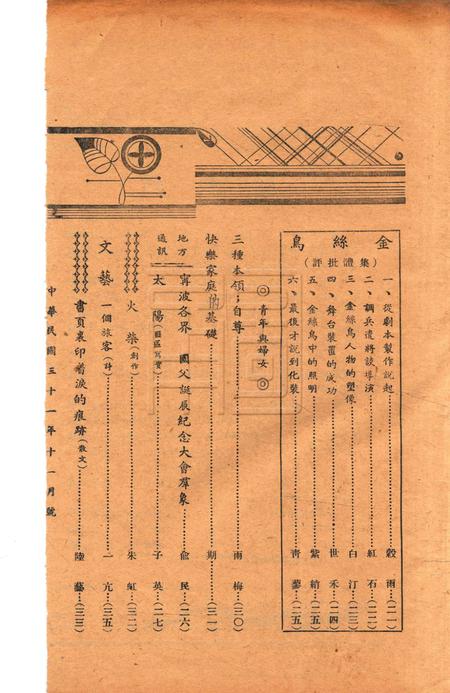 金絲鳥
(集體批評)
一、從劇本製作說起……穀雨(二一)
二、調兵遣將談導演……紅石(二二)
三、金絲鳥人物的塑像……白汀(二三)
四、舞台裝置的成功……世禾(二四)
五、金絲鳥中的照明……紫綃(二五)
六、最後才說到化裝……青蓼(二五)
◎青年與婦女◎
三種本領；自尊……雨梅(三〇)
快樂家庭的基礎……期(三一)
地方通訊
寧波各界 國父誕辰紀念大會羣象……俞民(二六)
太陽(縣區寫實)……子英(二七)
火柴(創作)……朱紅(三二)
文藝
一個旅客(詩)……一亢(三五)
書頁裏印着淚的痕跡(散文)……陸藝(三三)
中華民國三十一年十一月號